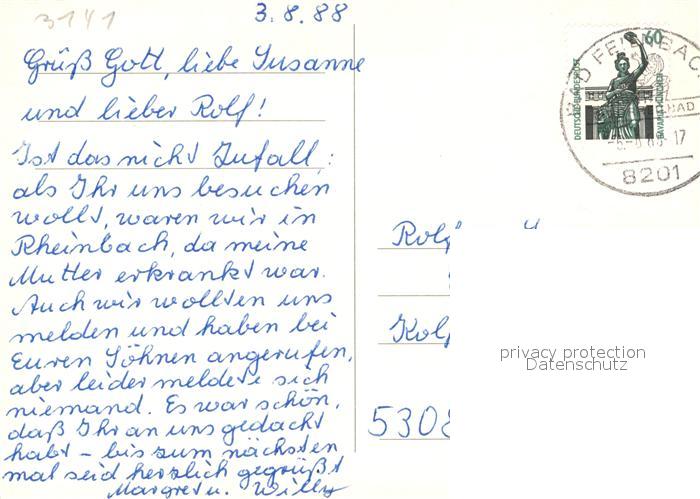 3141
3.8.88
Grüß Gott, liebe Susanne
und lieber Rolf!
Ist das nicht Zufall:
als Ihr uns besuchen
wollt, waren wir in
Rheinbach, da meine
Mutter erkrankt war.
Auch wir wollten uns
melden und haben bei
Euren Söhnen angerufen,
aber leider meldete sich
niemand. Es war schön,
daß Ihr an uns gedacht
habt – bis zum nächsten
mal seid herzlich gegrüßt
Margret u. Willy
60
DEUTSCHE BUNDESPOST
BAVARIA MÜNCHEN
BAD FEILNBACH
17
8201
Rolf
Kolp
5308
privacy protection
Datenschutz